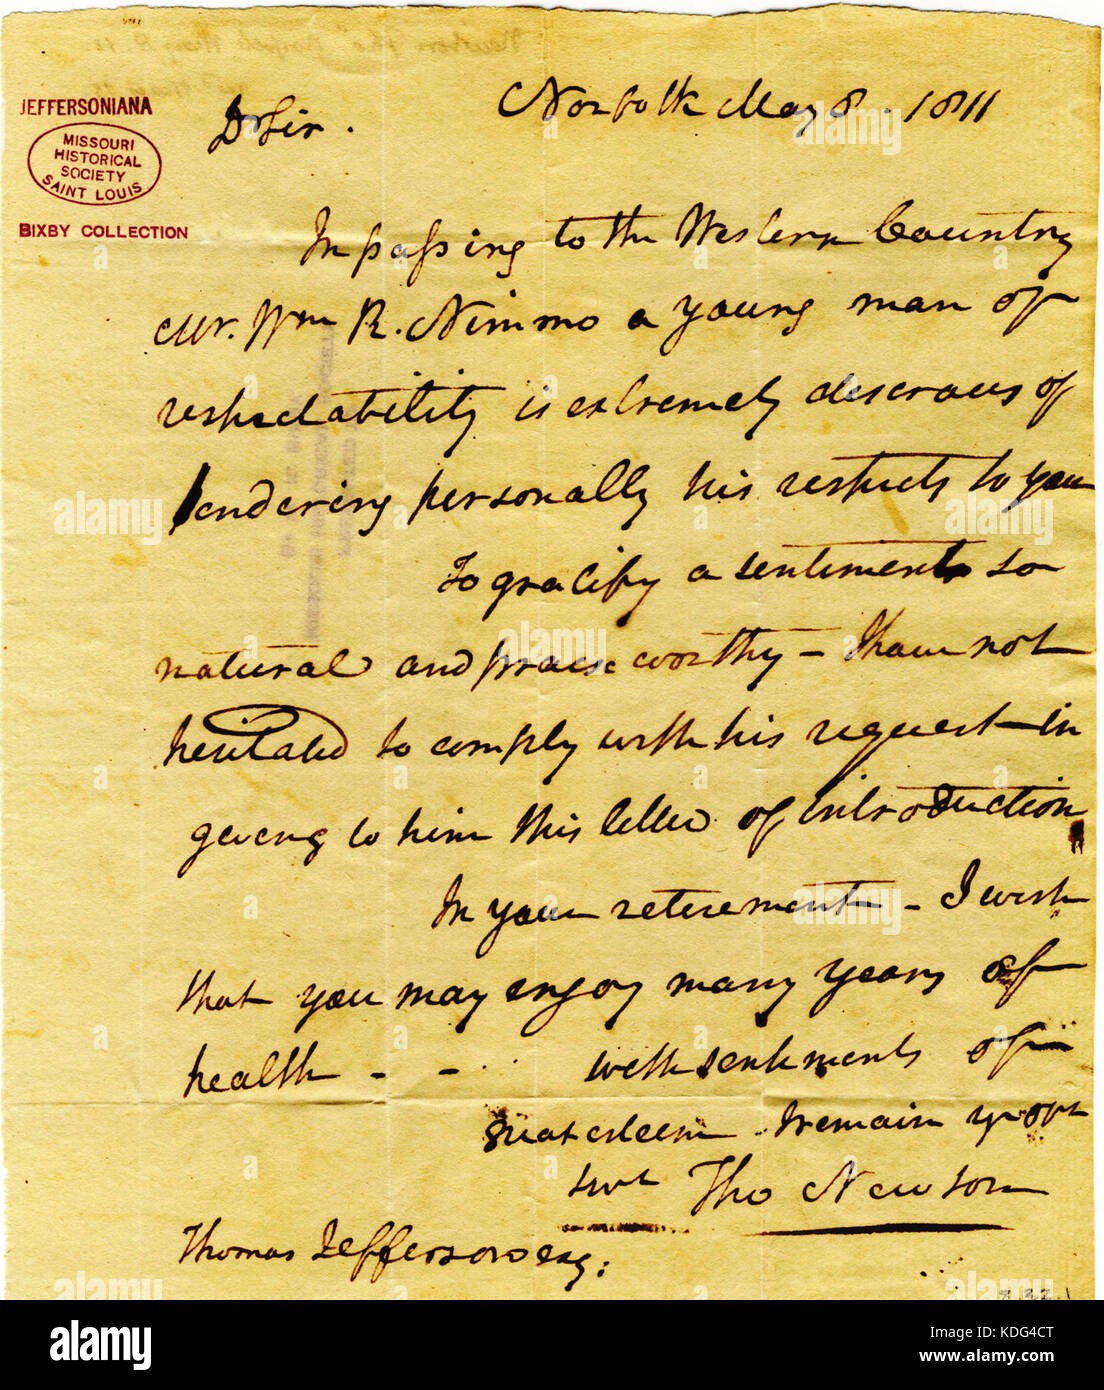 JEFFERSONIANA
MISSOURI
HISTORICAL
SOCIETY
SAINT LOUIS
BIXBY COLLECTION
Norfolk May 8. 1811
Dr Sir.
In passing to the Western Country
Mr. Wm R. Nimmo a young man of
respectability is extremely desirous of
tendering personally his respects to you
To gratify a sentiment so
natural and praise worthy – I have not
hesitated to comply with his request in
giving to him this letter of introduction
In your retirement – I wish
that you may enjoy many years of
health - - with sentiments of
great esteem I remain yr obt
servt Tho Newton
Thomas Jefferson esq:
alamy
Image ID: KDG4CT
www.alamy.com